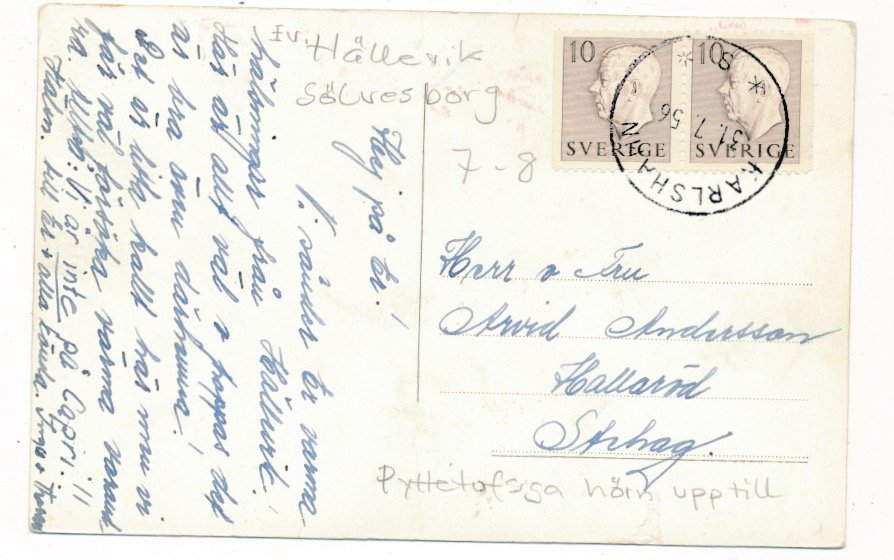 Ev. Hällevik
Sölvesborg
7-8
10
SVERIGE
10
SVERIGE
KARLSHAMN
31.7.56
Hej på Er!
Vi sänder Er varma
hälsningar från Hällevik.
Här är allt väl o hoppas det
är bra även därhemma.
Det är lite kallt här men vi
får väl försöka värma varann
ha. Ullbb: Vi är inte på Capri. "
Häls. till Er + alla kända.
Herr o Fru
Arvid Andersson
Hallaröd
Stehag.
Pyttetofsiga hörn upptill